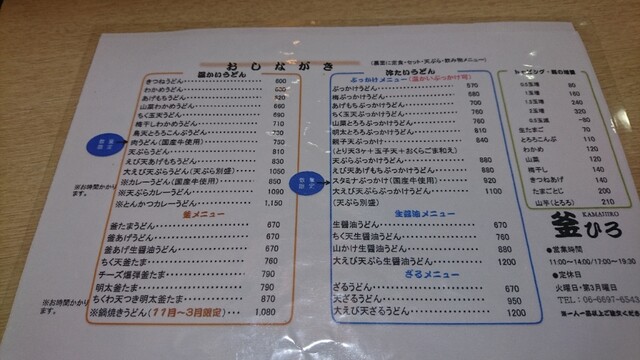 おしながき
(裏面に定食・セット・天ぷら・飲み物メニュー)
温かいうどん
きつねうどん 600
わかめうどん
あげもちうどん
山菜わかめうどん 660
ちく玉天うどん 690
梅干しわかめうどん 710
鳥天とろろこんぶうどん 730
数量限定
肉うどん(国産牛使用) 730
天ぷらうどん 810
えび天あげもちうどん 830
大えび天ぷらうどん(天ぷら別盛) 1050
※お時間かかります。
※カレーうどん(国産牛使用) 850
※天ぷらカレーうどん 1090
※とんかつカレーうどん 1,150
釜メニュー
釜たまうどん 670
釜あげうどん 670
釜あげ生醤油うどん 670
ちく天釜たま 760
チーズ爆弾釜たま 790
明太釜たま 790
ちくわ天つき明太釜たま 870
※お時間かかります。
※鍋焼きうどん(11月~3月限定) 1,080
冷たいうどん
ぶっかけメニュー(温かいぶっかけ可)
ぶっかけうどん 570
梅ぶっかけうどん 680
あげもちぶっかけうどん 760
ちく玉天ぶっかけうどん 700
山菜とろろぶっかけうどん 760
明太とろろぶっかけうどん 810
親子天ぶっかけ 840
(とり天3ヶ+玉子天+おくらごま和え)
天ぷらぶっかけうどん 880
えび天あげもちぶっかけうどん 880
数量限定
スタミナぶっかけうどん(国産牛使用) 920
大えび天ぷらぶっかけうどん 1100
(天ぷら別盛)
生醤油メニュー
生醤油うどん 670
ちく天生醤油うどん 760
山かけ生醤油うどん 880
大えび天ぷら生醤油うどん 1200
ざるメニュー
ざるうどん 670
天ざるうどん 950
大えび天ざるうどん 1200
トッピング・麺の増量
0.5玉増 80
1玉増 160
1.5玉増 240
2玉増 320
0.5玉減 -80
生たまご 70
とろろこんぶ 110
わかめ 120
山菜 120
梅干し 140
きつねあげ 140
たまごとじ 200
山芋(とろろ) 210
釜ひろ
KAMAHIRO
●営業時間
11:00~14:00/17:00~19:30
●定休日
火曜日・第3月曜日
TEL:06-6697-6543